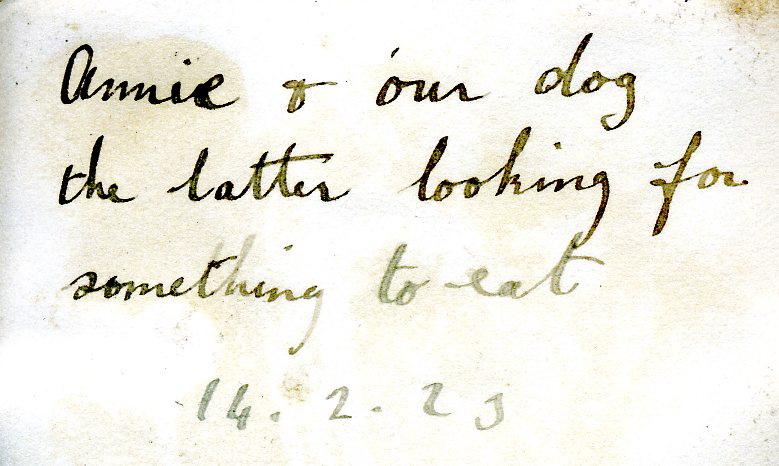 Annie & our dog
the latter looking for
something to eat
14.2.23